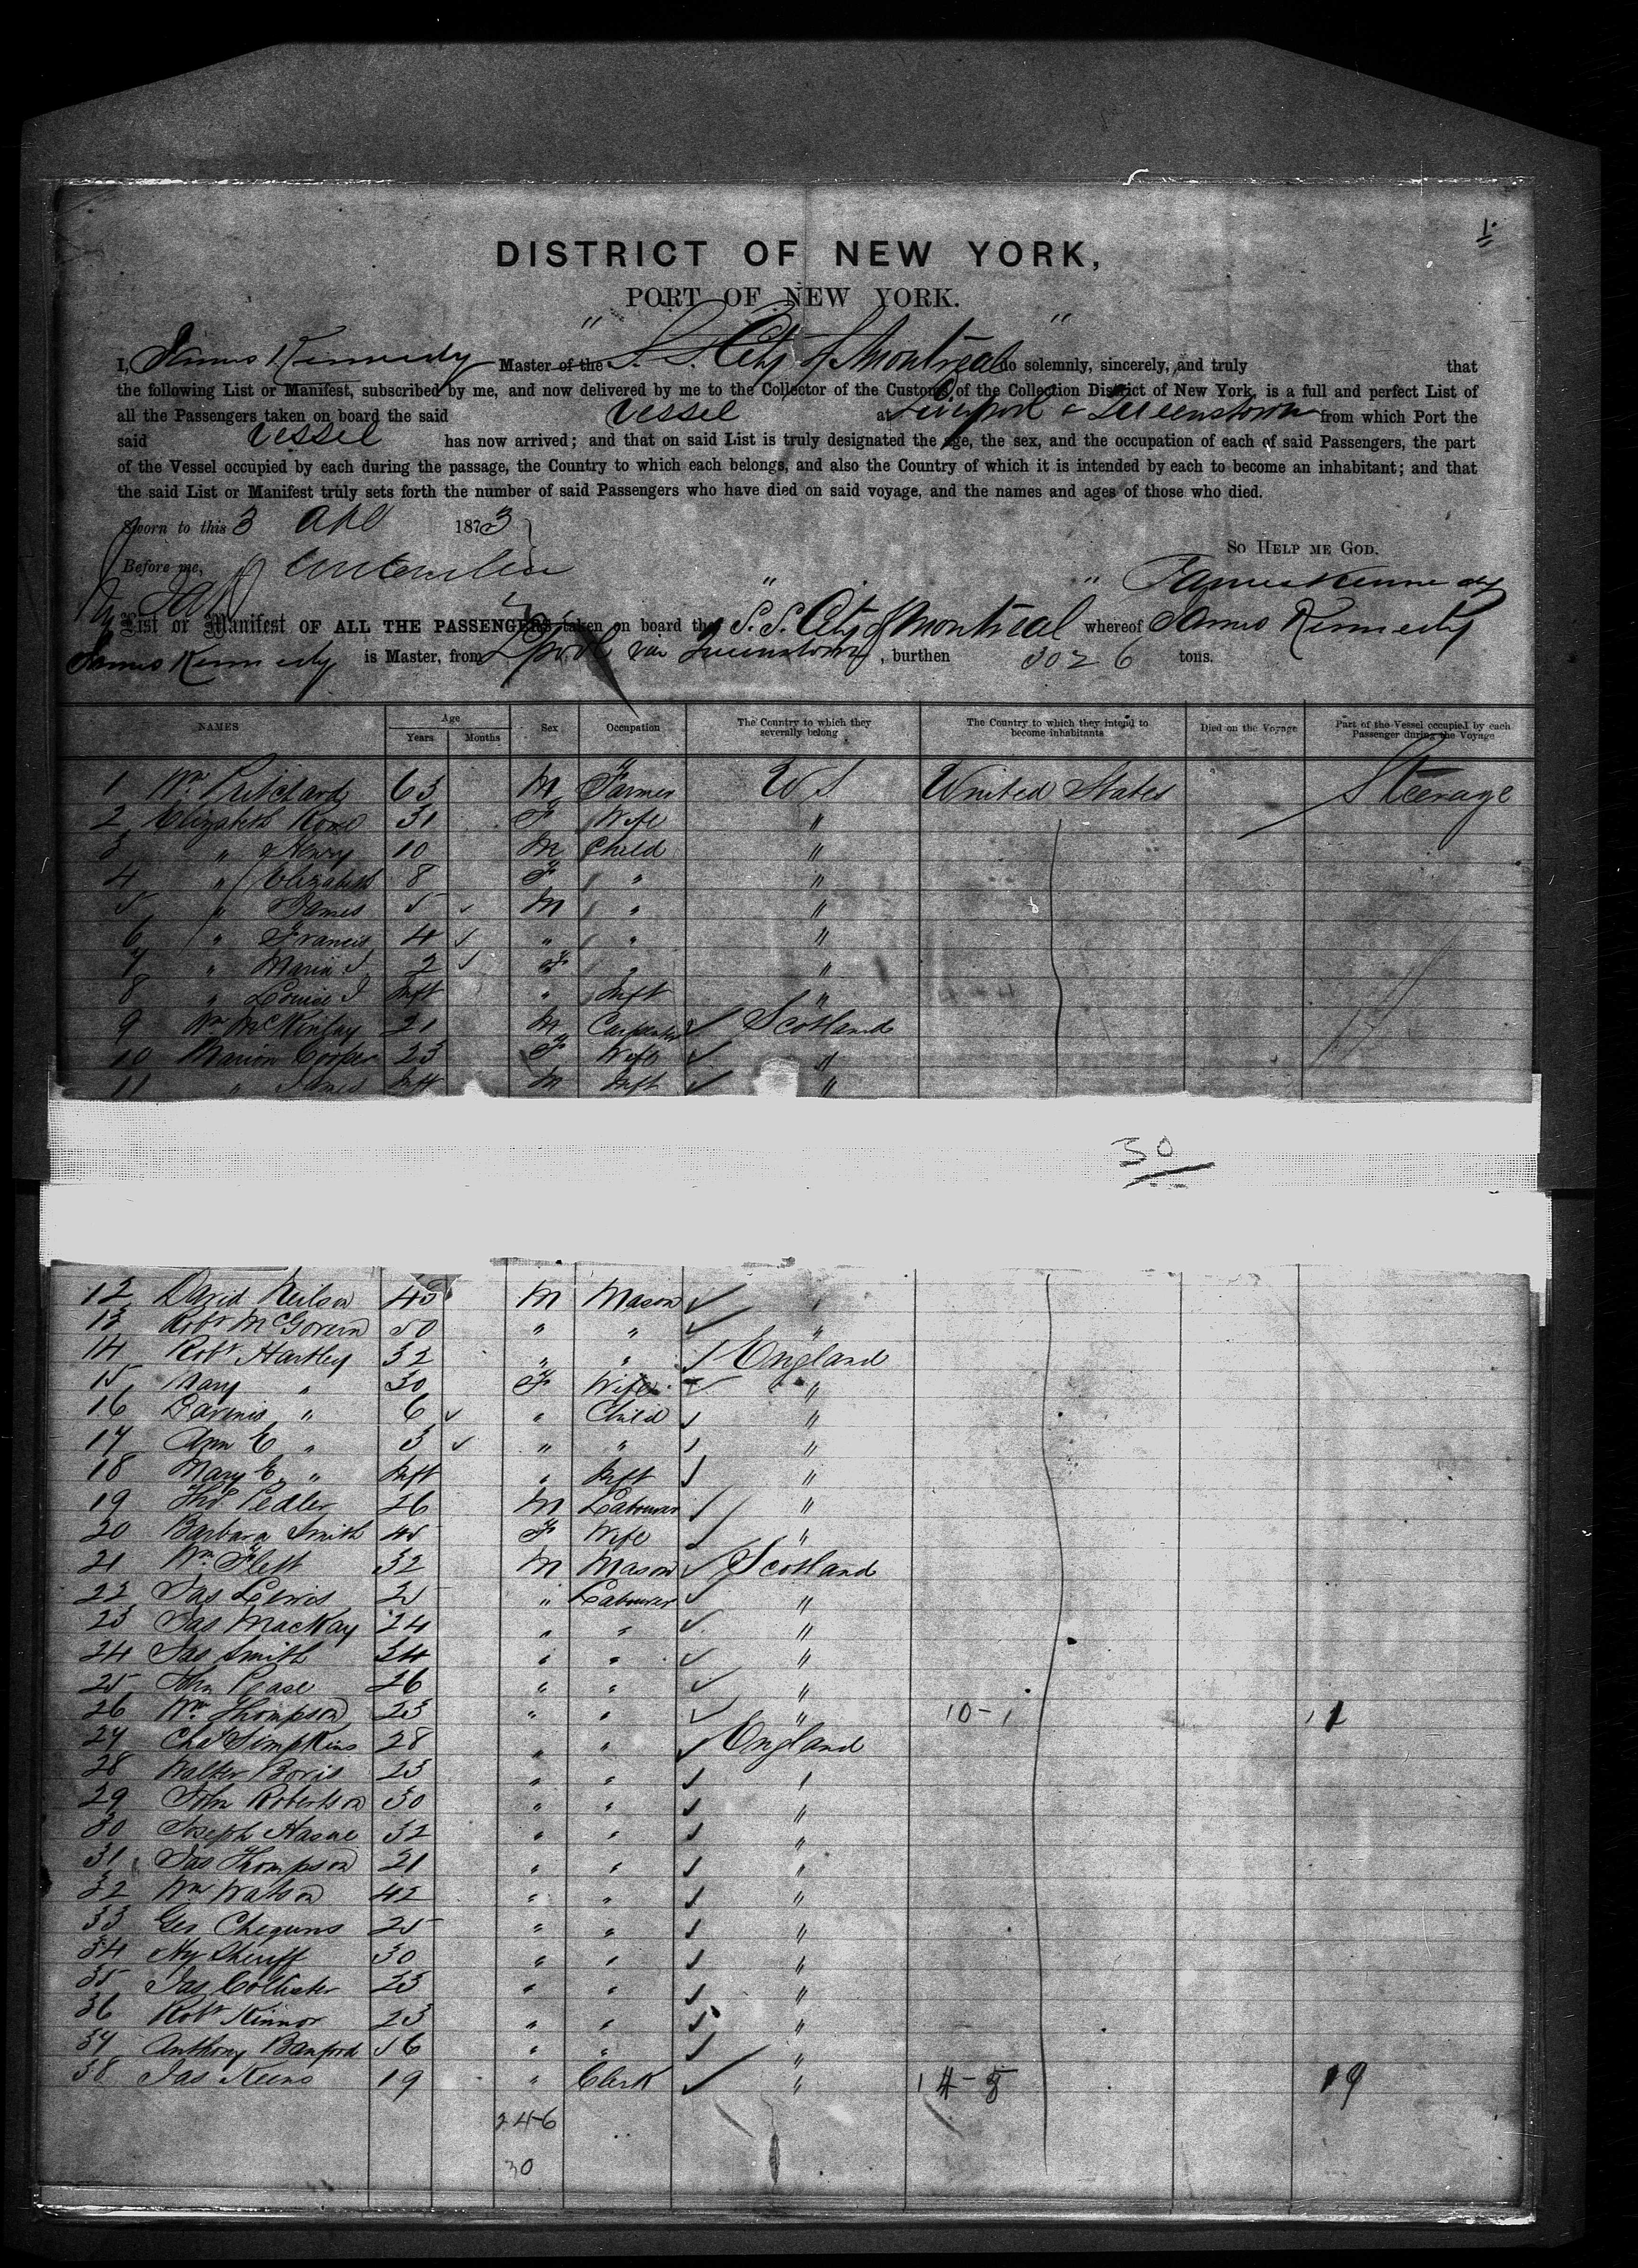 1
DISTRICT OF NEW YORK,
PORT OF NEW YORK.
I, James Kennedy Master of the S. S. City of Montreal do solemnly, sincerely, and truly that
the following List or Manifest, subscribed by me, and now delivered by me to the Collector of the Customs of the Collection District of New York, is a full and perfect List of
all the Passengers taken on board the said Vessel at Liverpool & Queenstown from which Port the
said Vessel has now arrived; and that on said List is truly designated the age, the sex, and the occupation of each of said Passengers, the part
of the Vessel occupied by each during the passage, the Country to which each belongs, and also the Country of which it is intended by each to become an inhabitant; and that
the said List or Manifest truly sets forth the number of said Passengers who have died on said voyage, and the names and ages of those who died.
Sworn to this 3 Apl 1873
So Help me God.
Before me,
James Kennedy
List or Manifest OF ALL THE PASSENGERS taken on board the S. S. City of Montreal whereof James Kennedy
James Kennedy is Master, from Lpool via Queenstown, burthen 3026 tons.
NAMES Age Years Months Sex Occupation The Country to which they severally belong The Country to which they intend to become inhabitants Died on the Voyage Part of the Vessel occupied by each Passenger during the Voyage
1 Wm Pritchard 63 M Farmer U S United States Steerage
2 Elizabeth 31 F Wife "
3 " Henry 10 M Child "
4 " Elizabeth 8 F " "
5 " James 5 M " "
6 " Francis 4 " " "
7 " Maria J 2 F " "
8 " Louise J Inft " Inft "
9 Wm McKinlay 21 M Carpenter Scotland
10 Marion Cooper 23 F Wife "
11 " James Inft M Inft "
30
12 David Neilson 40 M Mason "
13 Robt McGovern 50 " " "
14 Robt Hartley 32 " " England
15 Mary " 30 F Wife "
16 " 6 " Child "
17 Ann E " 3 " " "
18 Mary E " Inft " Inft "
19 Thos Pedler 26 M Labourer "
20 Barbara Smith 45 F Wife "
21 Wm Flett 32 M Mason Scotland
22 Jas Lewis 25 " Labourer "
23 Jas MacKay 24 " " "
24 Jas Smith 34 " " "
25 John Pease 26 " " "
26 Wm Thompson 23 " " " 10-1 11
27 Chas Simpkins 28 " " England
28 Walter 23 " " "
29 John Robertson 30 " " "
30 Joseph 32 " " "
31 Jas Thompson 21 " " "
32 Wm Watson 42 " " "
33 Geo 25 " " "
34 Hy Sheriff 30 " " "
35 Jas Collister 23 " " "
36 Robt Kinnor 23 " " "
37 Anthony Banford 56 " " "
38 Jas Keens 19 " Clerk " 14-5 19
246
30